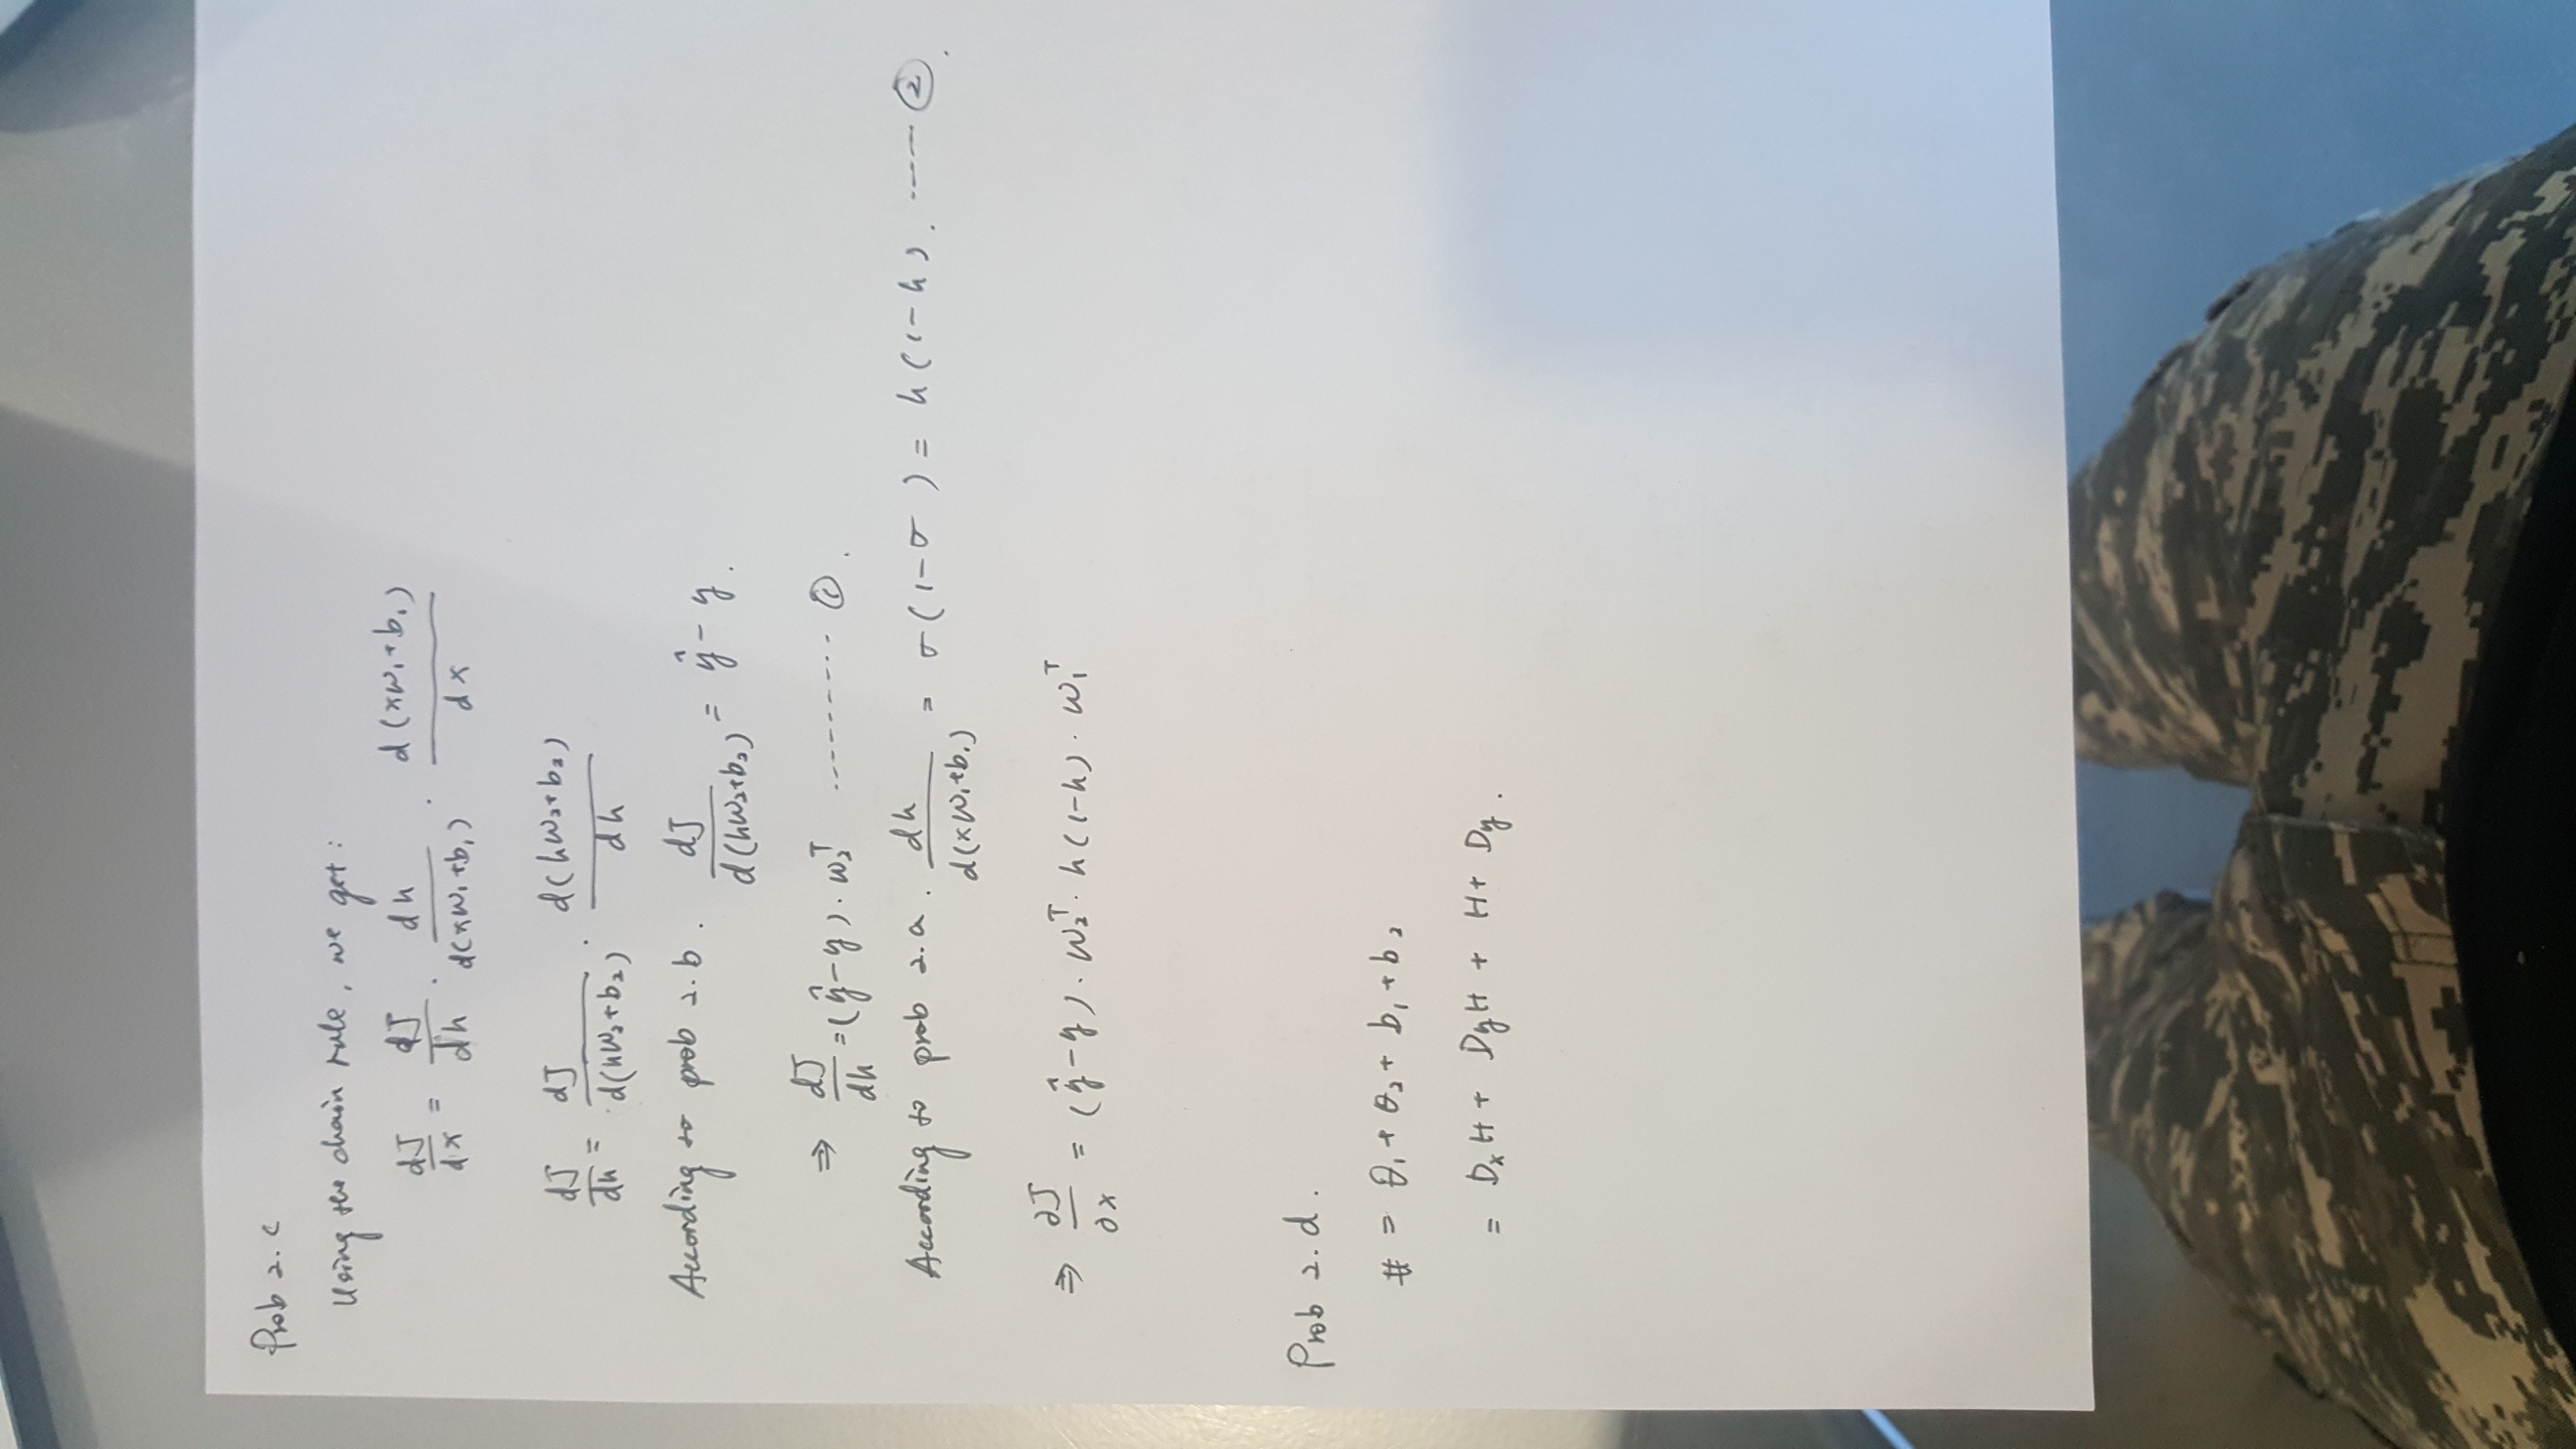 Prob 2.c
Using the chain rule, we get:
dJ/dx = dJ/dh · dh/d(xw₁+b₁) · d(xw₁+b₁)/dx
dJ/dh = dJ/d(hw₂+b₂) · d(hw₂+b₂)/dh
According to prob 2.b. dJ/d(hw₂+b₂) = ŷ - y.
⇒ dJ/dh = (ŷ-y)·w₂ᵀ --------- ①.
According to prob 2.a. dh/d(xw₁+b₁) = σ(1-σ) = h(1-h). ----- ②.
⇒ ∂J/∂x = (ŷ-y)·w₂ᵀ·h(1-h)·w₁ᵀ
Prob 2.d.
# = θ₁ + θ₂ + b₁ + b₂
= DₓH + DyH + H + Dy.